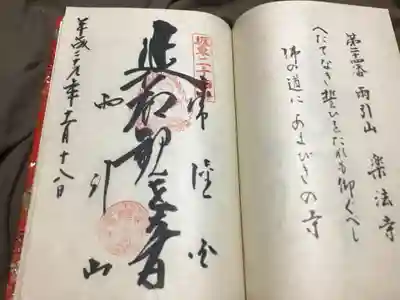 第廿四番 雨引山 楽法寺
へだてなき誓ひをたれも仰ぐべし
佛の道にあまびきの寺
坂東二十四番
常陸国
延命観世音
雨引山
平成二九年
月十八日